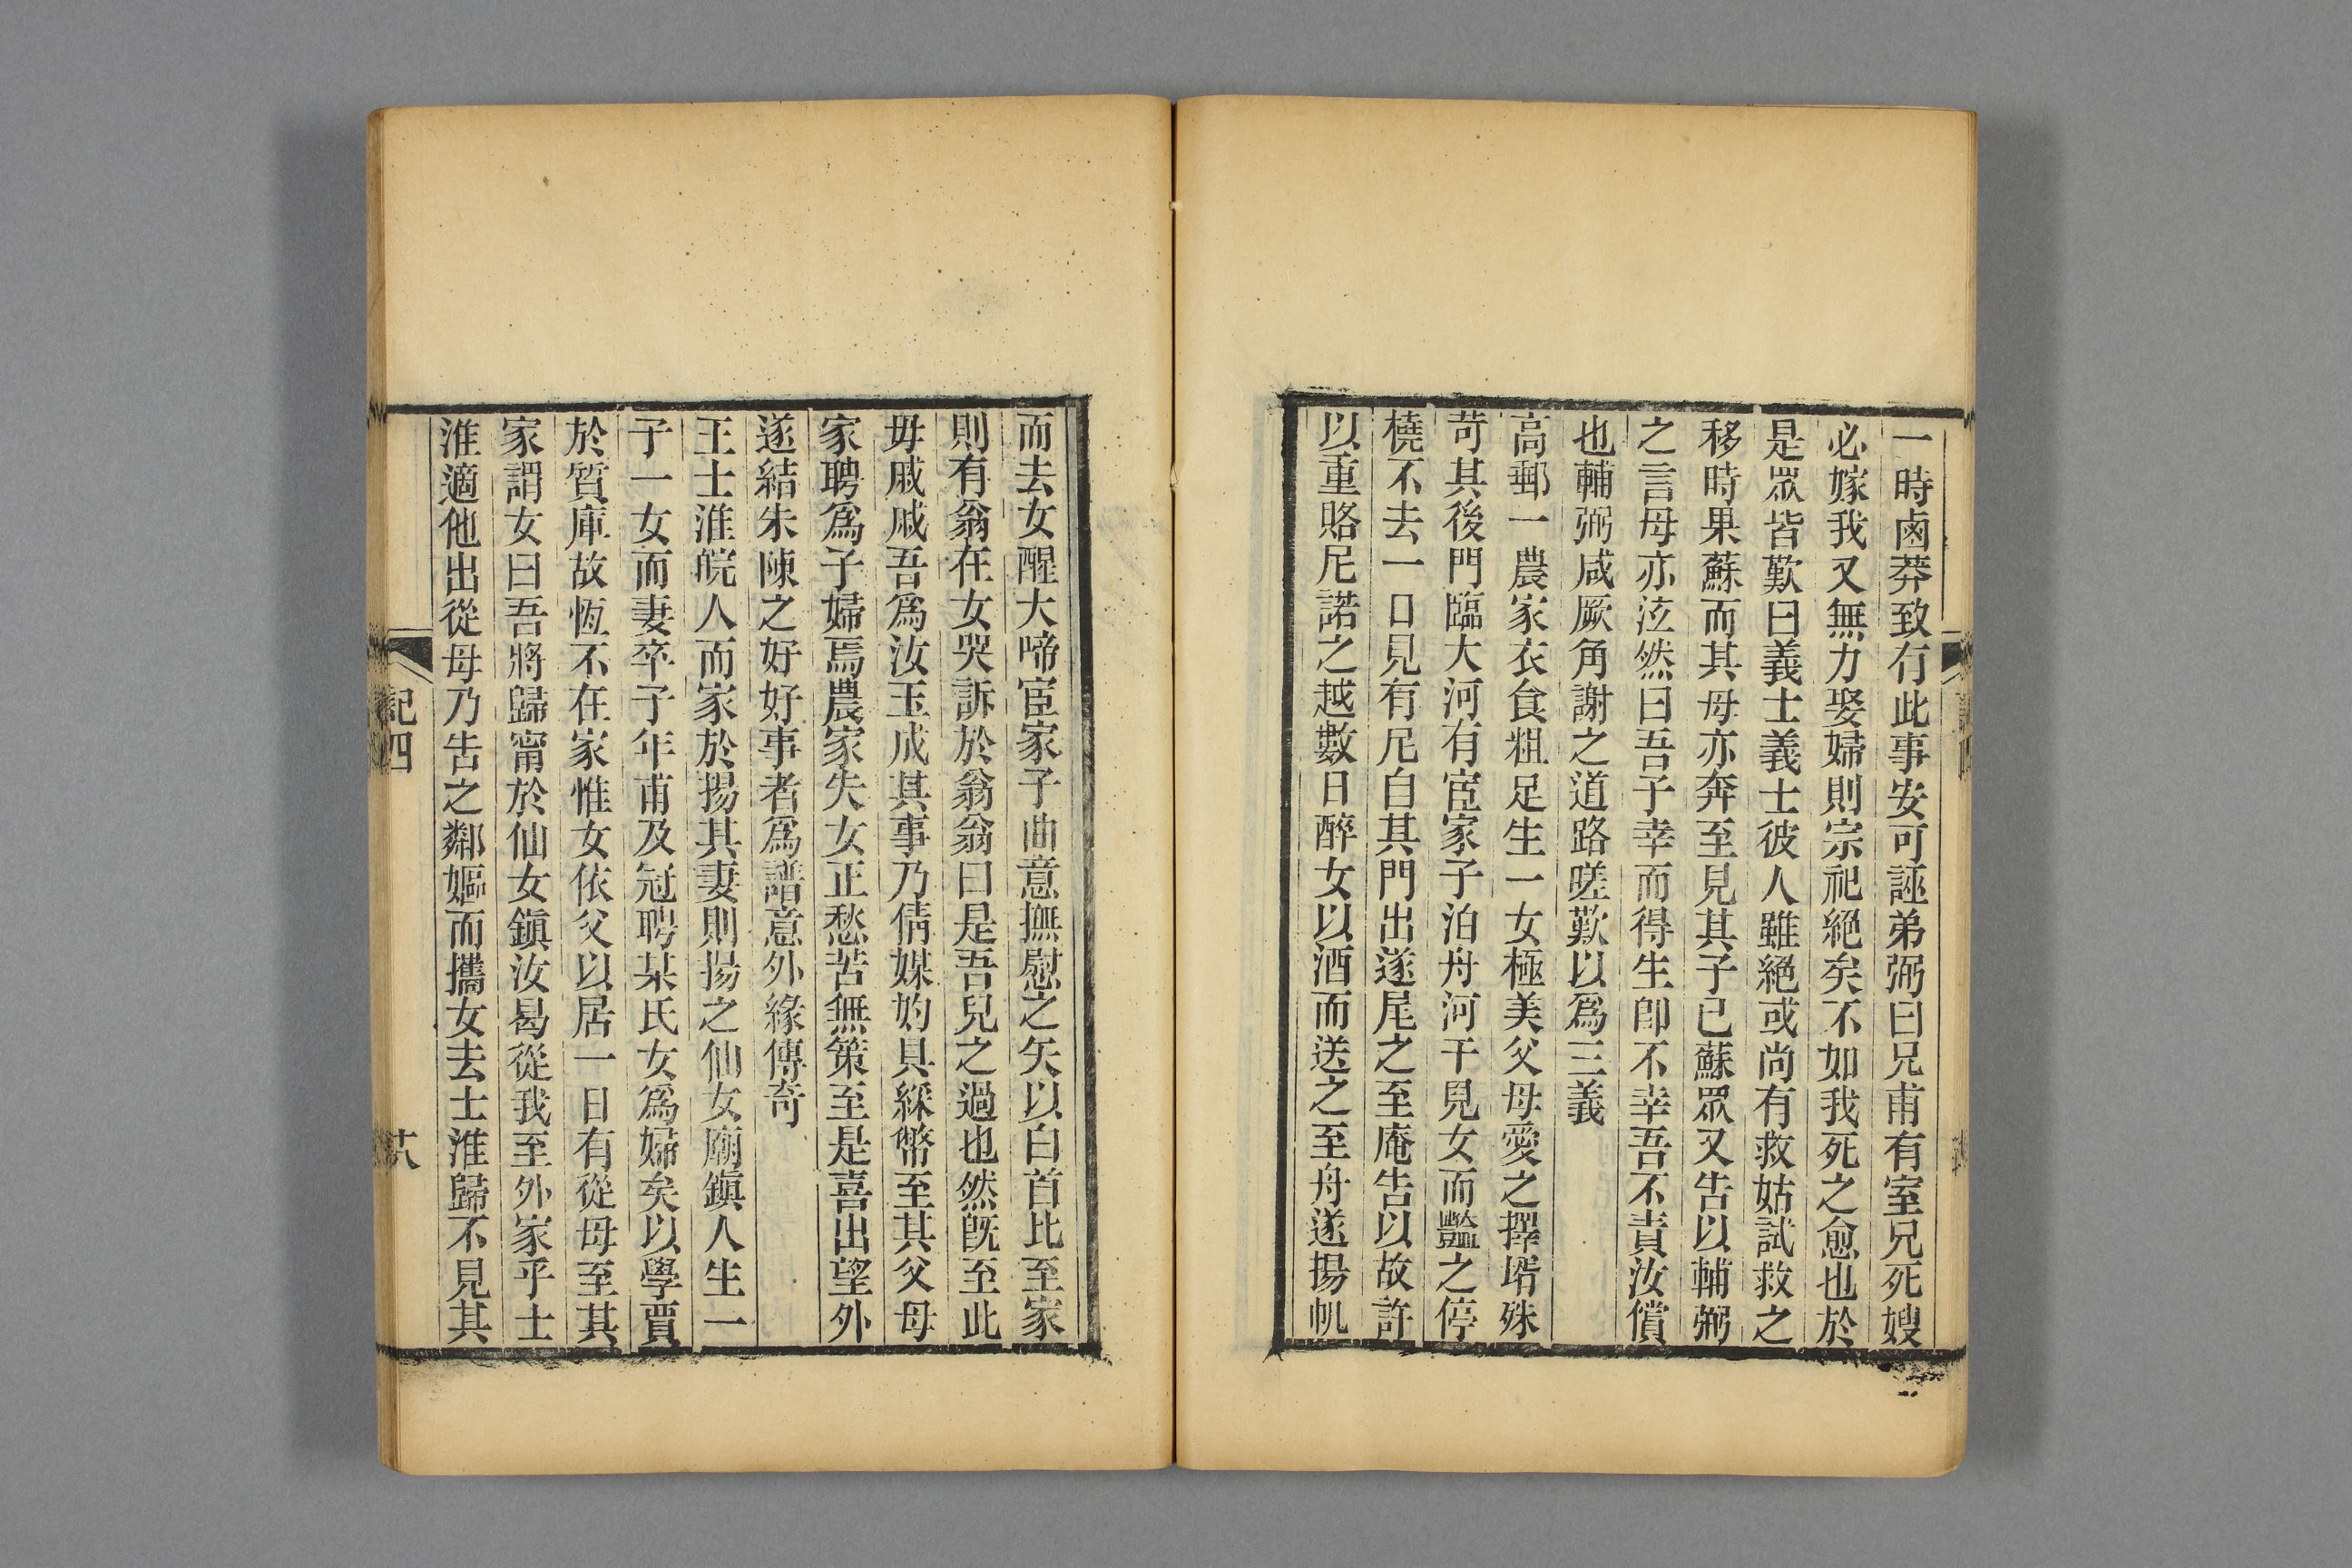 一時鹵莽致有此事安可誣弟弼曰兄甫有室兄死嫂
必嫁我又無力娶婦則宗祀絕矣不如我死之愈也於
是眾皆歎曰義士義士彼人雖絕或尚有救姑試救之
移時果蘇而其母亦奔至見其子已蘇眾又告以輔弼
之言母亦泣然曰吾子幸而得生卽不幸吾不責汝償
也輔弼咸厥角謝之道路嗟歎以爲三義
高郵一農家衣食粗足生一女極美父母愛之擇壻殊
苛其後門臨大河有宦家子泊舟河干見女而豔之停
橈不去一日見有尼自其門出遂尾之至庵告以故許
以重賂尼諾之越數日醉女以酒而送之至舟遂揚帆
而去女醒大啼宦家子曲意撫慰之矢以白首比至家
則有翁在女哭訴於翁翁曰是吾兒之過也然旣至此
毋戚戚吾爲汝玉成其事乃倩媒妁具綵幣至其父母
家聘爲子婦焉農家失女正愁苦無策至是喜出望外
遂結朱陳之好好事者爲譜意外緣傳奇
王士淮皖人而家於揚其妻則揚之仙女廟鎭人生一
子一女而妻卒子年甫及冠聘某氏女爲婦矣以學賈
於質庫故恆不在家惟女依父以居一日有從母至其
家謂女曰吾將歸甯於仙女鎭汝曷從我至外家乎士
淮適他出從母乃告之鄰嫗而攜女去士淮歸不見其
記四
大